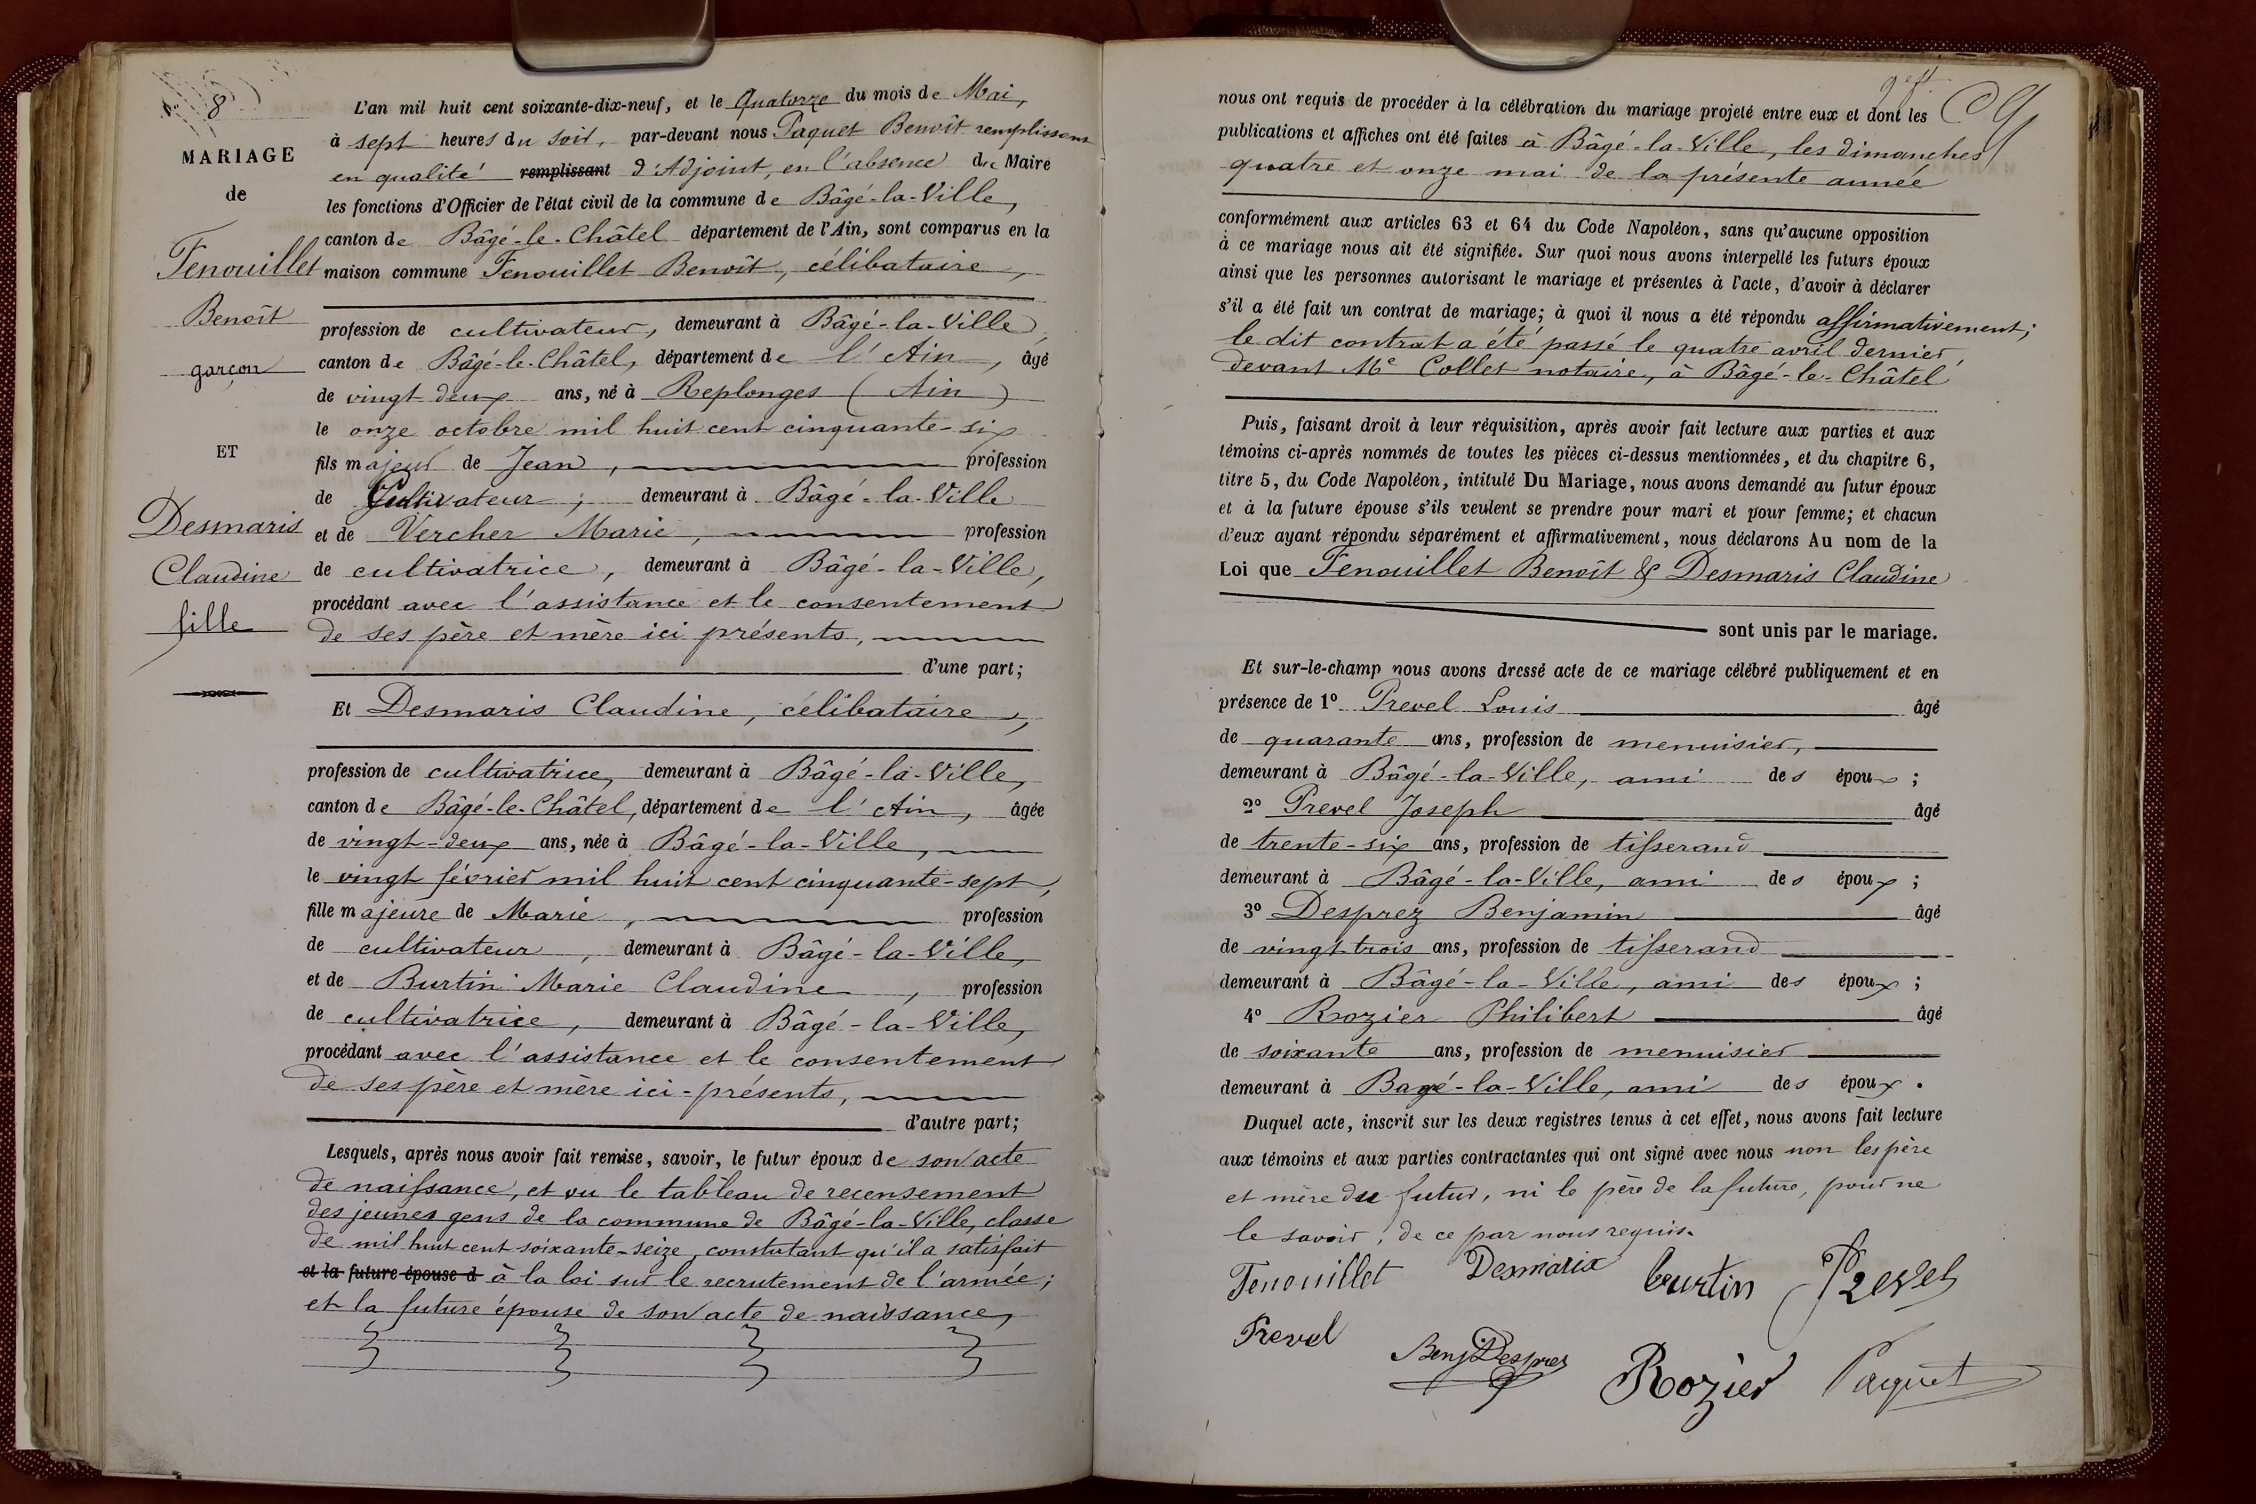 8
MARIAGE
de
Fenouillet
Benoît
garçon
ET
Desmaris
Claudine
fille
L'an mil huit cent soixante-dix-neuf, et le Quatorze du mois de Mai,
à sept heures du soir, par-devant nous Paquet Benoît remplissant
en qualité remplissant d'Adjoint, en l'absence du Maire
les fonctions d'Officier de l'état civil de la commune de Bâgé-la-Ville,
canton de Bâgé-le-Châtel département de l'Ain, sont comparus en la
maison commune Fenouillet Benoît, célibataire,
profession de cultivateur, demeurant à Bâgé-la-Ville,
canton de Bâgé-le-Châtel, département de l'Ain, âgé
de vingt deux ans, né à Replonges (Ain)
le onze octobre mil huit cent cinquante-six
fils majeur de Jean, profession
de Cultivateur; demeurant à Bâgé-la-Ville
et de Vercher Marie, profession
de cultivatrice, demeurant à Bâgé-la-Ville,
procédant avec l'assistance et le consentement
de ses père et mère ici présents,
d'une part;
Et Desmaris Claudine, célibataire,
profession de cultivatrice, demeurant à Bâgé-la-Ville,
canton de Bâgé-le-Châtel, département de l'Ain, âgée
de vingt-deux ans, née à Bâgé-la-Ville,
le vingt février mil huit cent cinquante-sept,
fille majeure de Marie, profession
de cultivateur, demeurant à Bâgé-la-Ville,
et de Burtin Marie Claudine, profession
de cultivatrice, demeurant à Bâgé-la-Ville,
procédant avec l'assistance et le consentement
de ses père et mère ici-présents,
d'autre part;
Lesquels, après nous avoir fait remise, savoir, le futur époux de son acte
de naissance, et vu le tableau de recensement
des jeunes gens de la commune de Bâgé-la-Ville, classe
de mil huit cent soixante-seize, constatant qu'il a satisfait
et la future épouse d à la loi sur le recrutement de l'armée;
et la future épouse de son acte de naissance,
nous ont requis de procéder à la célébration du mariage projeté entre eux et dont les
publications et affiches ont été faites à Bâgé-la-Ville, les dimanches
quatre et onze mai de la présente année
conformément aux articles 63 et 64 du Code Napoléon, sans qu'aucune opposition
à ce mariage nous ait été signifiée. Sur quoi nous avons interpellé les futurs époux
ainsi que les personnes autorisant le mariage et présentes à l'acte, d'avoir à déclarer
s'il a été fait un contrat de mariage; à quoi il nous a été répondu affirmativement;
le dit contrat a été passé le quatre avril dernier,
devant Me Collet notaire, à Bâgé-le-Châtel
Puis, faisant droit à leur réquisition, après avoir fait lecture aux parties et aux
témoins ci-après nommés de toutes les pièces ci-dessus mentionnées, et du chapitre 6,
titre 5, du Code Napoléon, intitulé Du Mariage, nous avons demandé au futur époux
et à la future épouse s'ils veulent se prendre pour mari et pour femme; et chacun
d'eux ayant répondu séparément et affirmativement, nous déclarons Au nom de la
Loi que Fenouillet Benoît & Desmaris Claudine
sont unis par le mariage.
Et sur-le-champ nous avons dressé acte de ce mariage célébré publiquement et en
présence de 1º Prevel Louis âgé
de quarante ans, profession de menuisier,
demeurant à Bâgé-la-Ville, ami des époux;
2º Prevel Joseph âgé
de trente-six ans, profession de tisserand
demeurant à Bâgé-la-Ville, ami des époux;
3º Desprez Benjamin âgé
de vingt-trois ans, profession de tisserand
demeurant à Bâgé-la-Ville, ami des époux;
4º Rozier Philibert âgé
de soixante ans, profession de menuisier
demeurant à Bagé-la-Ville, ami des époux.
Duquel acte, inscrit sur les deux registres tenus à cet effet, nous avons fait lecture
aux témoins et aux parties contractantes qui ont signé avec nous non les père
et mère du futur, ni le père de la future, pour ne
le savoir, de ce par nous requis.
Fenouillet Desmarix burtin Prevel
Prevel Benj Desprez Rozier Paquet